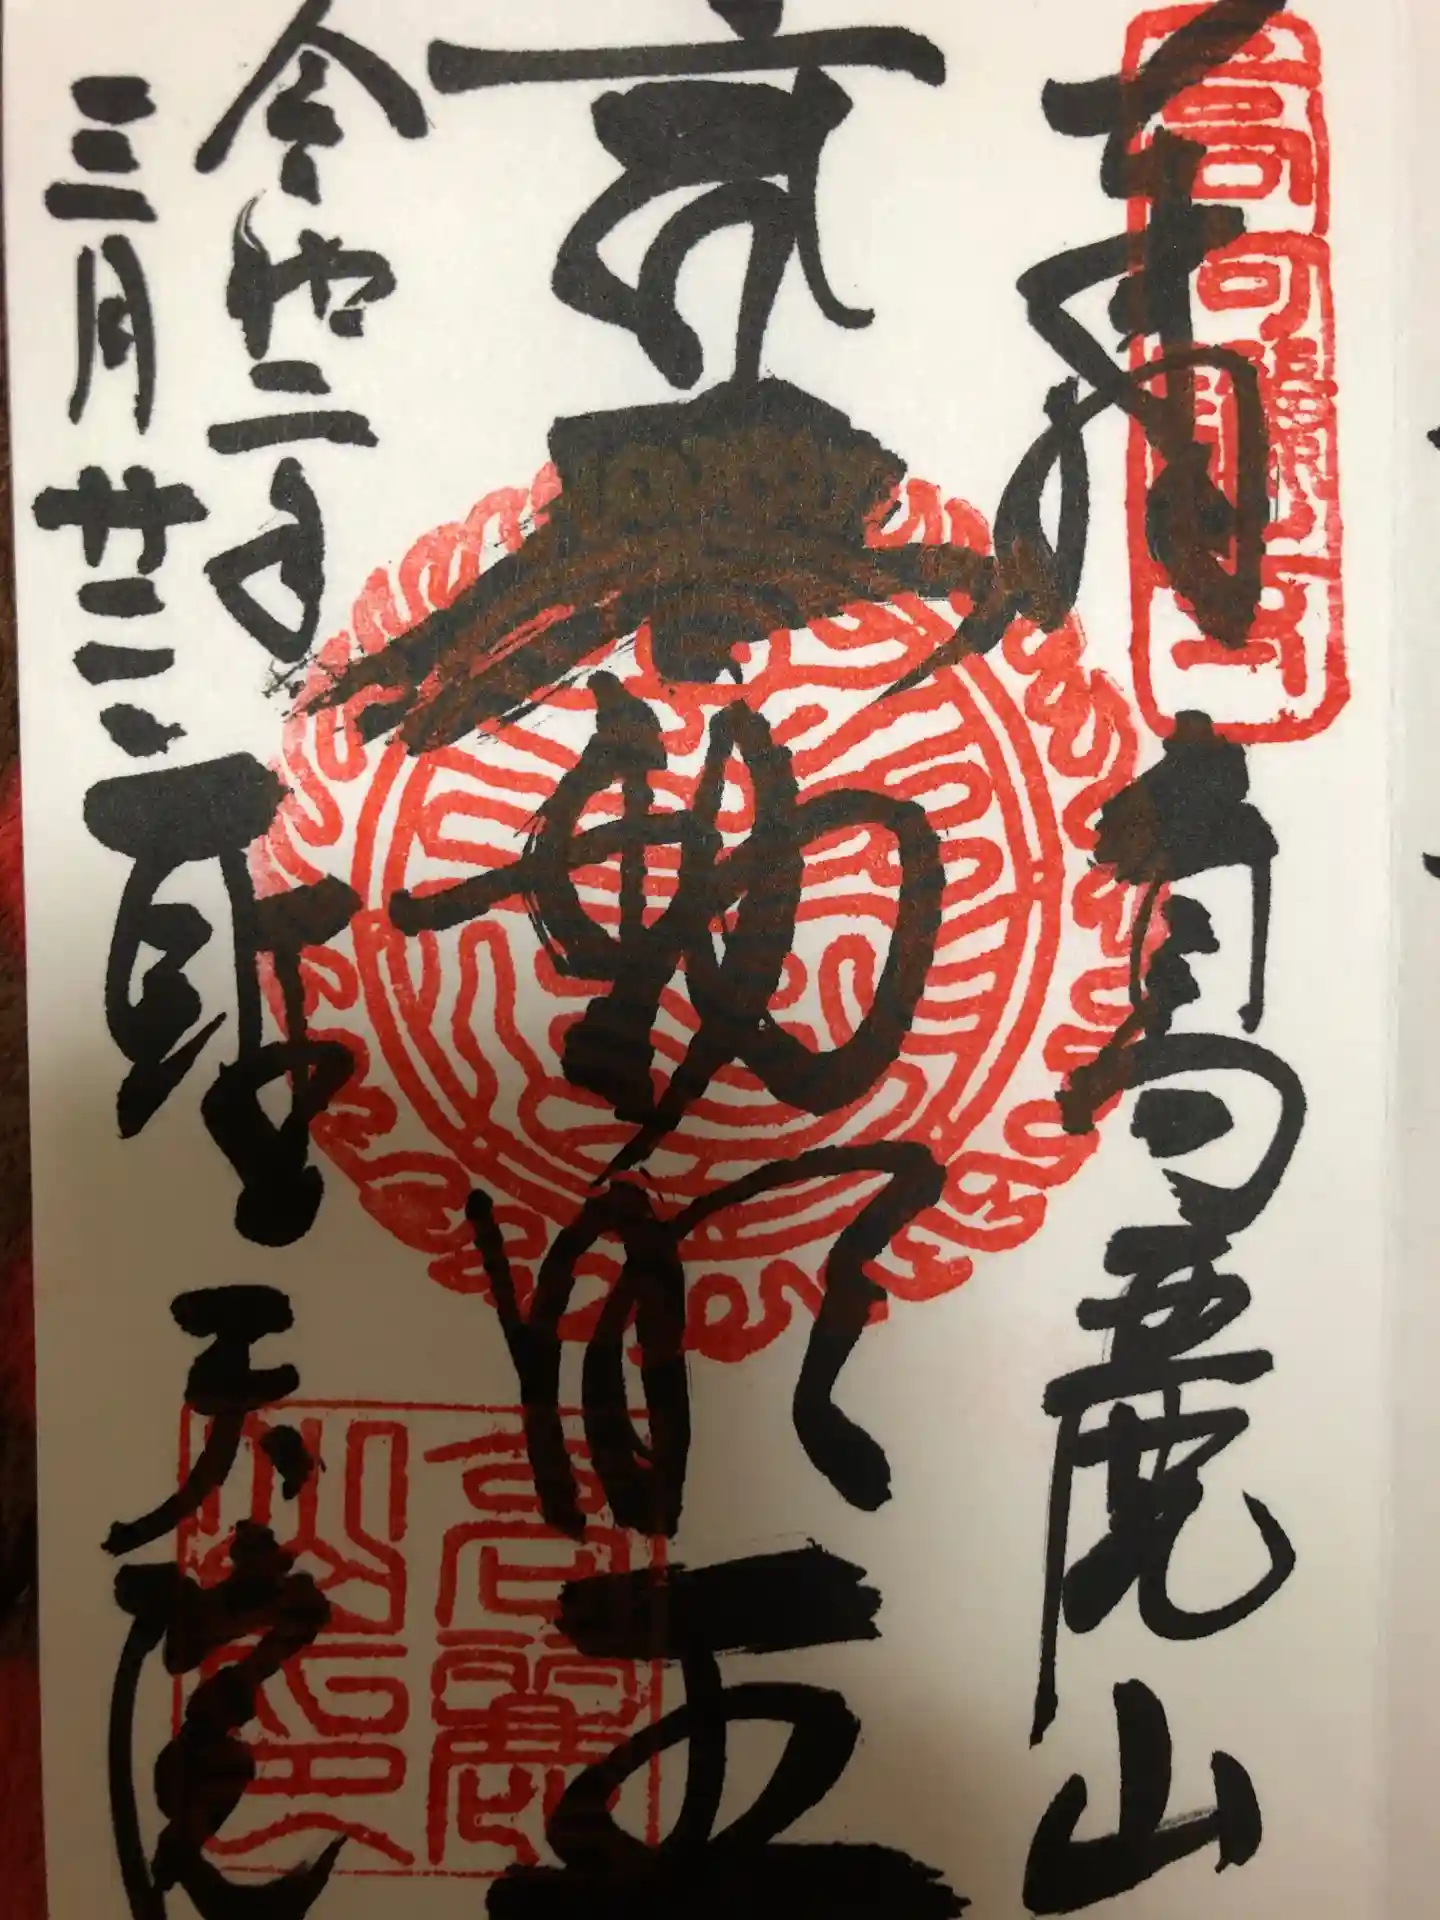 奉拝
高麗山
不動明王
令和二年
三月廿二日
聖天院
高麗山印